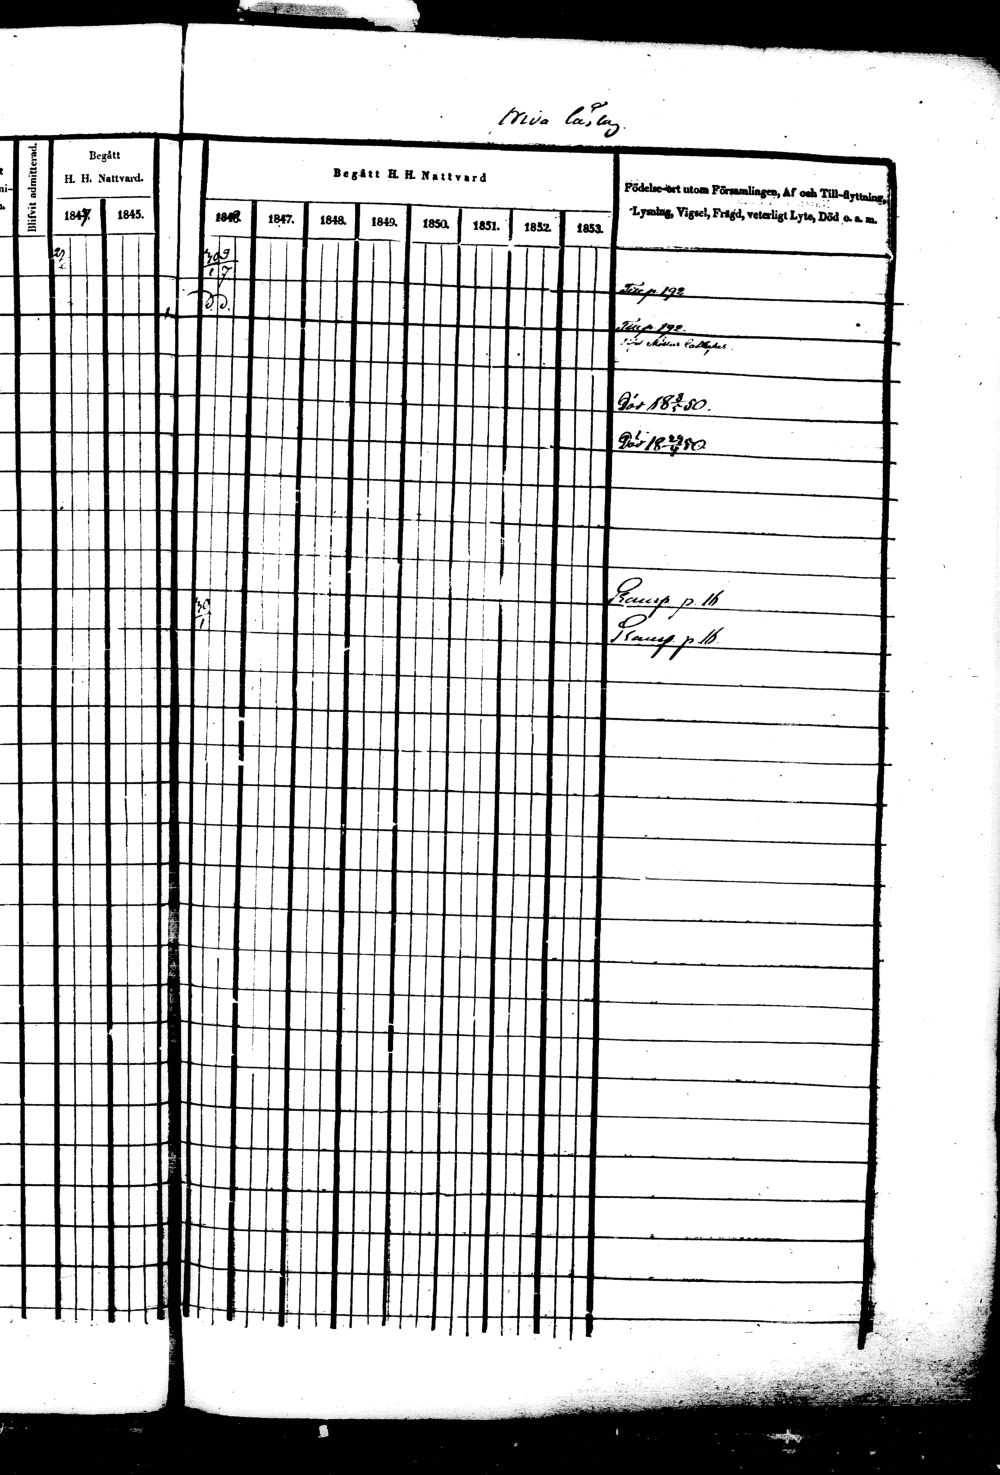 Blifvit admitterad.
Begått
H. H. Nattvard.
1847. 1845.
Begått H. H. Nattvard
1846. 1847. 1848. 1849. 1850. 1851. 1852. 1853.
Födelse-ort utom Församlingen, Af och Till-flyttning,
Lysning, Vigsel, Frägd, veterligt Lyte, Död o. a. m.
30 9
1 7
p 192
p 192
Död 18 3/5 50.
Död 18 29/4 50
p. 16
30
1
p. 16